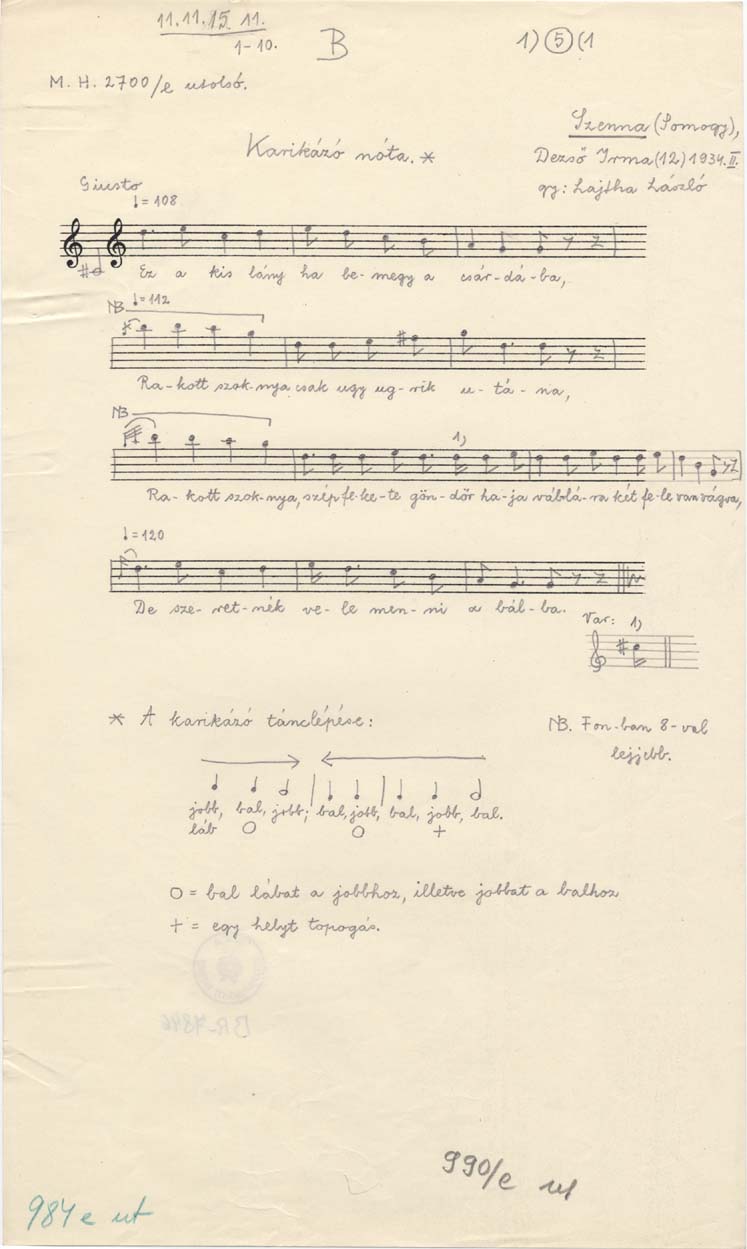 11.11.15.11.
1-10.
B
1) 5 (1
M. H. 2700/e utolsó.
Szenna (Somogy),
Karikázó nóta. *
Dezső Irma (12) 1934. II.
Giusto
gy: Lajtha László
♩= 108
Ez a kis lány ha be-megy a csár-dá-ba,
NB ♩= 112
Ra-kott szok-nya csak ugy ug-rik u-tá-na,
NB
1)
Ra-kott szok-nya, szép fe-ke-te gön-dör ha-ja váblá-ra két fe-le van vágva,
♩= 120
De sze-ret-nék ve-le men-ni a bál-ba.
Var: 1)
* A karikázó tánclépése:
NB. Fon-ban 8-val
lejjebb.
jobb, bal, jobb; bal, jobb, bal, jobb, bal.
láb O O +
O = bal lábat a jobbhoz, illetve jobbat a balhoz
+ = egy helyt topogás.
BR-7846
990/e ut
984 e ut